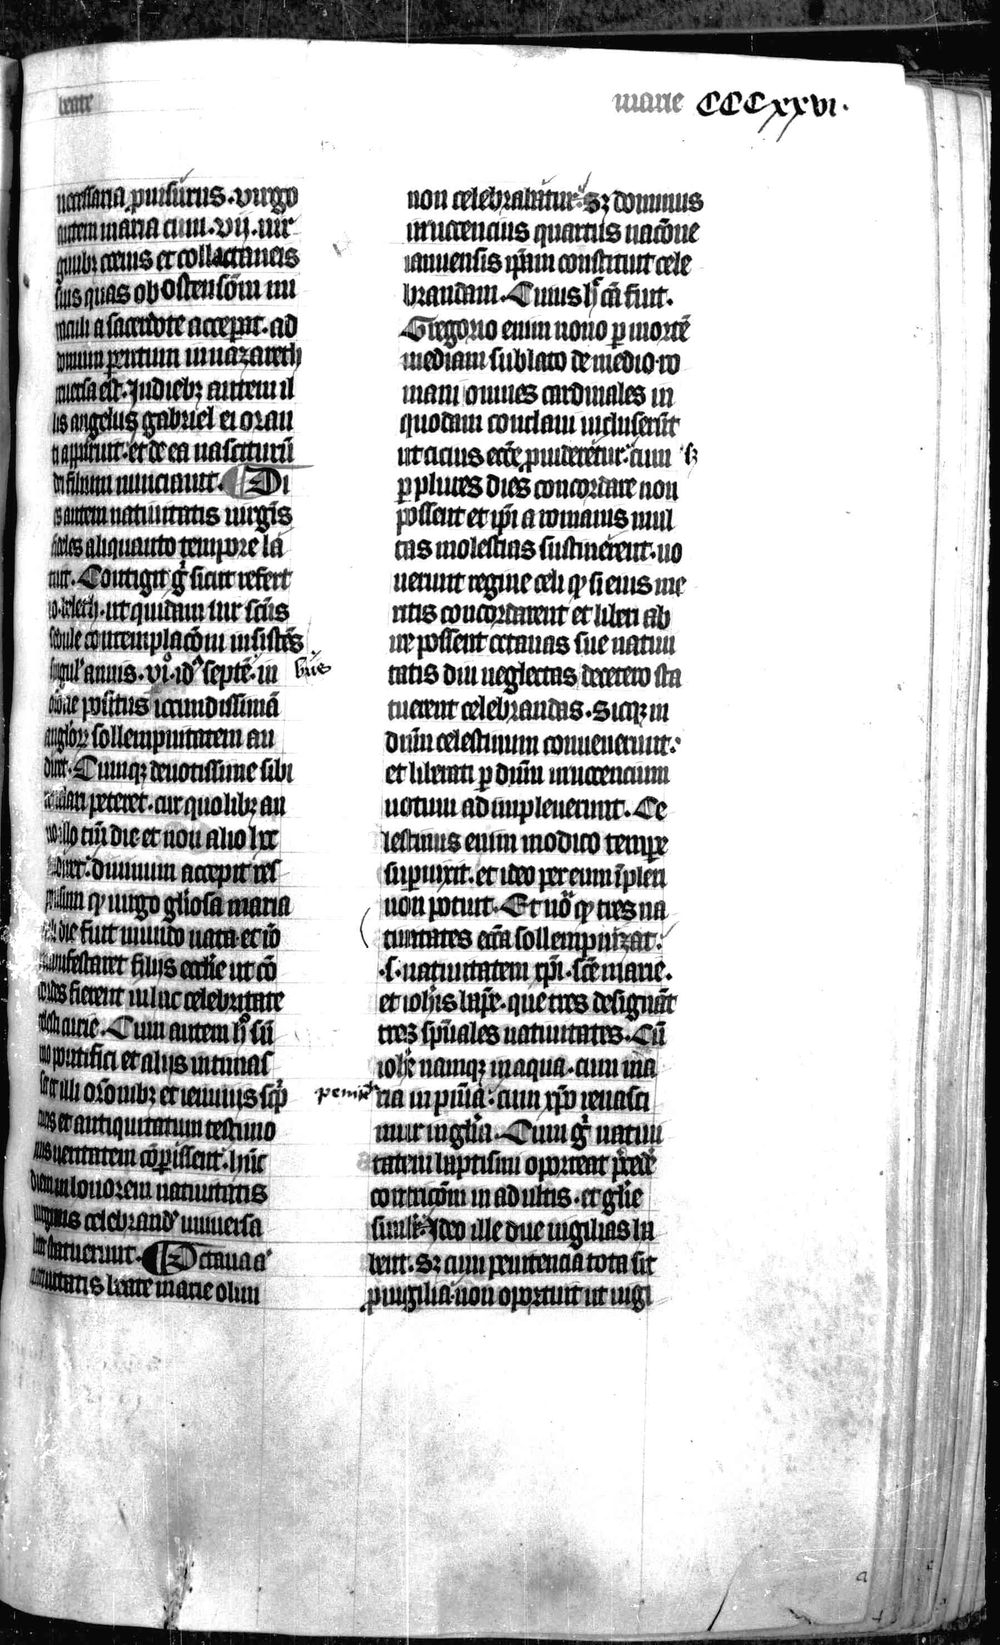 beate
marie CCCxxvi.
necessaria ꝓuisurus. virgo
autem maria cum. vij. uir
ginibꝫ coeuis et collactaneis
suis quas ob ostensōem mi
raculi a sacerdote accepit. ad
domum parentum in nazareth
reuersa est. In diebꝫ autem il
lis angelus gabriel ei oran
ti apparuit. et de ea nasciturū
dei filium nunciauit. Di
es autem natiuitatis uirgīs
fideles aliquanto tempore la
tuit. Contigit gͦ sicut refert
io. beleth. ut quidam uir scūs
sedule contemplacōni insistēs
singulˀ annis. vıͦ. idꝰ septēˀ. in
bris
orōne positus iocundissimā
anglorꝫ sollempnitatem au
diret. Cumqꝫ deuotissime sibi
reuelari peteret. cur quolibꝫ an
no illo tm̄ die et non alio hec
audiret. diuinum accepit res
ponsum qꝫ uirgo gl̄iosa maria
hac die fuit mundo nata. et iō
manifestaret filijs ecclīe ut cō
cordes fierent in huc celebritate
celesti curie. Cum autem hͦ sū
mo pontifici et alijs intimas
set et illi orōnibꝫ et ieiunijs scͥp
turis et antiquitatum testimo
nijs ueritatem cōperissent. hūc
diem in honorem natiuitatis
uirginis celebrandꝰ uniuersa
liter statuerunt. Octaua aͥ
natiuitatis beate marie olim
non celebrabatur. sꝫ dominus
innocencius quartus nacōne
ianuensis ip̄am constituit cele
brandam. Cuius hˢ cā fuit.
Gregorio enim nono ꝑ mortē
mediam sublato de medio. ro
mani omnes cardinales in
quodam conclaui incluserūt
ut cicius eccē ꝓuideretur. cum
sꝫ
ꝑ plures dies concordare non
possent et ip̄i a romanis mul
tas molestias sustinerent. uo
uerunt regine celi qꝫ si eius me
ritis concordarent et liberi ab
ire possent octauas sue natiui
tatis diu neglectas decetero sta
tuerent celebrandas. Sicqꝫ in
dn̄m celestinum conuenerunt.
et liberati ꝑ dn̄m innocencium
uotum adimpleuerunt. Ce
lestinus enim modico tempe
superuixit. et ideo per eum īpleri
non potuit. Et nōͣ qꝫ tres na
tiuitates eccā sollempnizat.
.s. natiuitatem xp̄i. scē marie.
et ioh̄is bap̄e. que tres designāt
tres spūales natiuitates. Cū
ioh̄e namqꝫ in aqua. cum ma
ria in pn̄ia. cum xp̄o renasci
mur in gl̄ia. Cum gͦ natiui
tatem baptismi oporteat p̄cedē
contricōm in adultis. et gl̄ie
simlr̄. Ideo ille due uigilias ha
bent. Sꝫ cum penitencia tota sit
ꝓ uigilia. non oportuit ut uigi
a